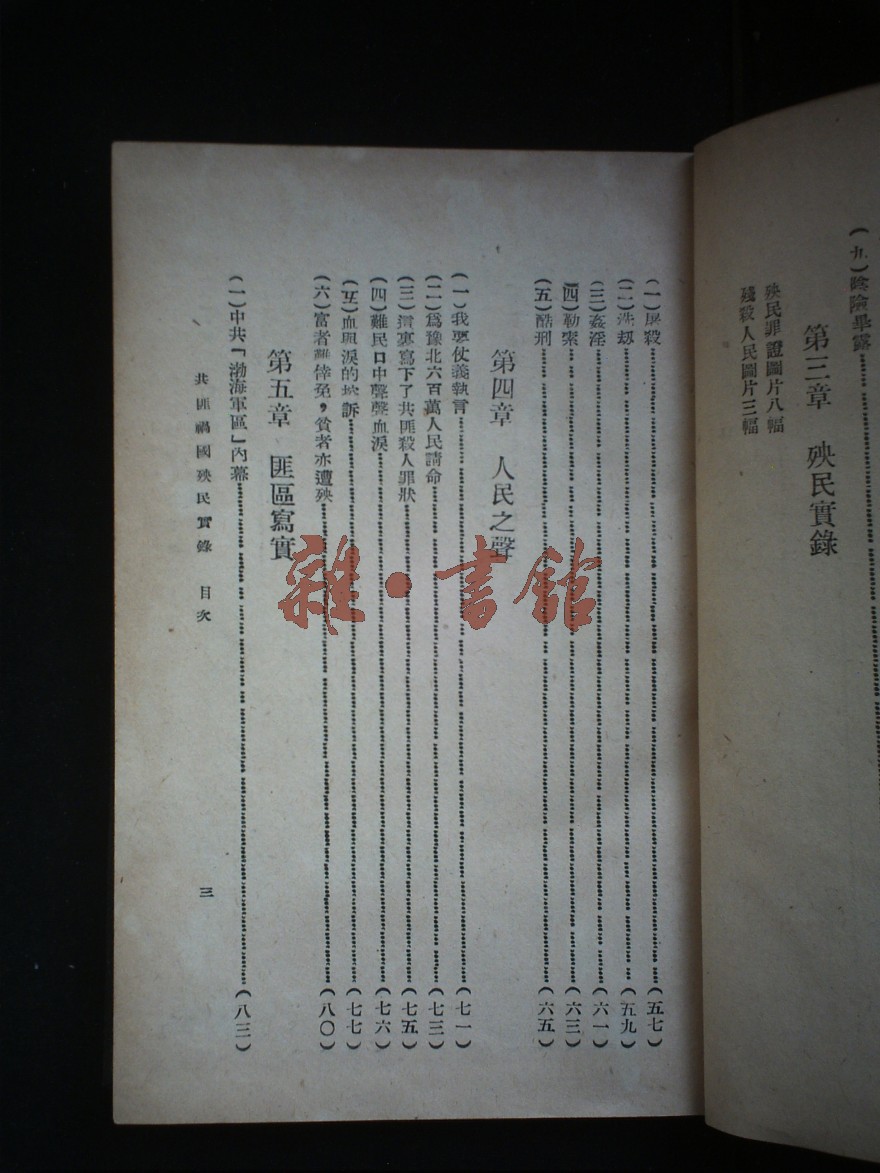 (九)陰險畢露
第三章 殃民實錄
殃民罪證圖片八幅
殘殺人民圖片三幅
(一)屠殺(五七)
(二)洗劫(五九)
(三)姦淫(六一)
(四)勒索(六三)
(五)酷刑(六五)
第四章 人民之聲
(一)我要仗義執言(七一)
(二)爲豫北六百萬人民請命(七三)
(三)寫下了共匪殺人罪狀(七五)
(四)難民口中聲聲血淚(七六)
(五)血與淚的控訴(七七)
(六)富者難倖免,貧者亦遭殃(八〇)
第五章 匪區寫實
(一)中共「渤海軍區」內幕(八三)
共匪禍國殃民實錄 目次
三
雜·書館